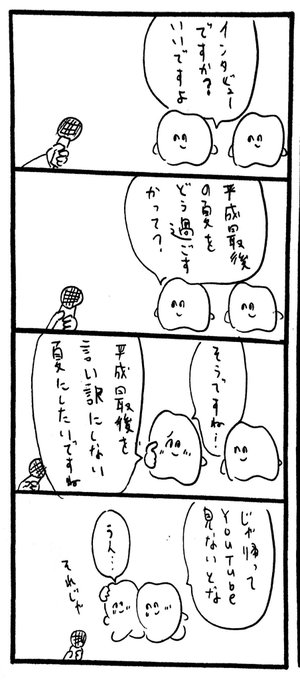 インタビュー
ですか？
いいですよ
平成最後
の夏を
どう過ごす
かって？
そうですね…
平成最後を
言い訳にしない
夏にしたいですね
じゃ帰って
YouTube
見ないとな
うん…
それじゃ